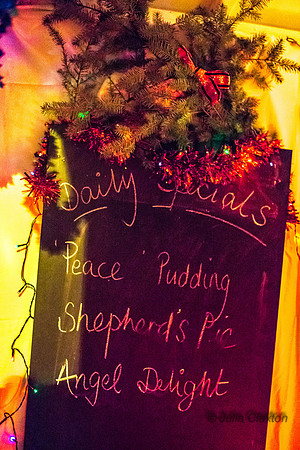 Daily Specials
'Peace' Pudding
Shepherd's Pie
Angel Delight